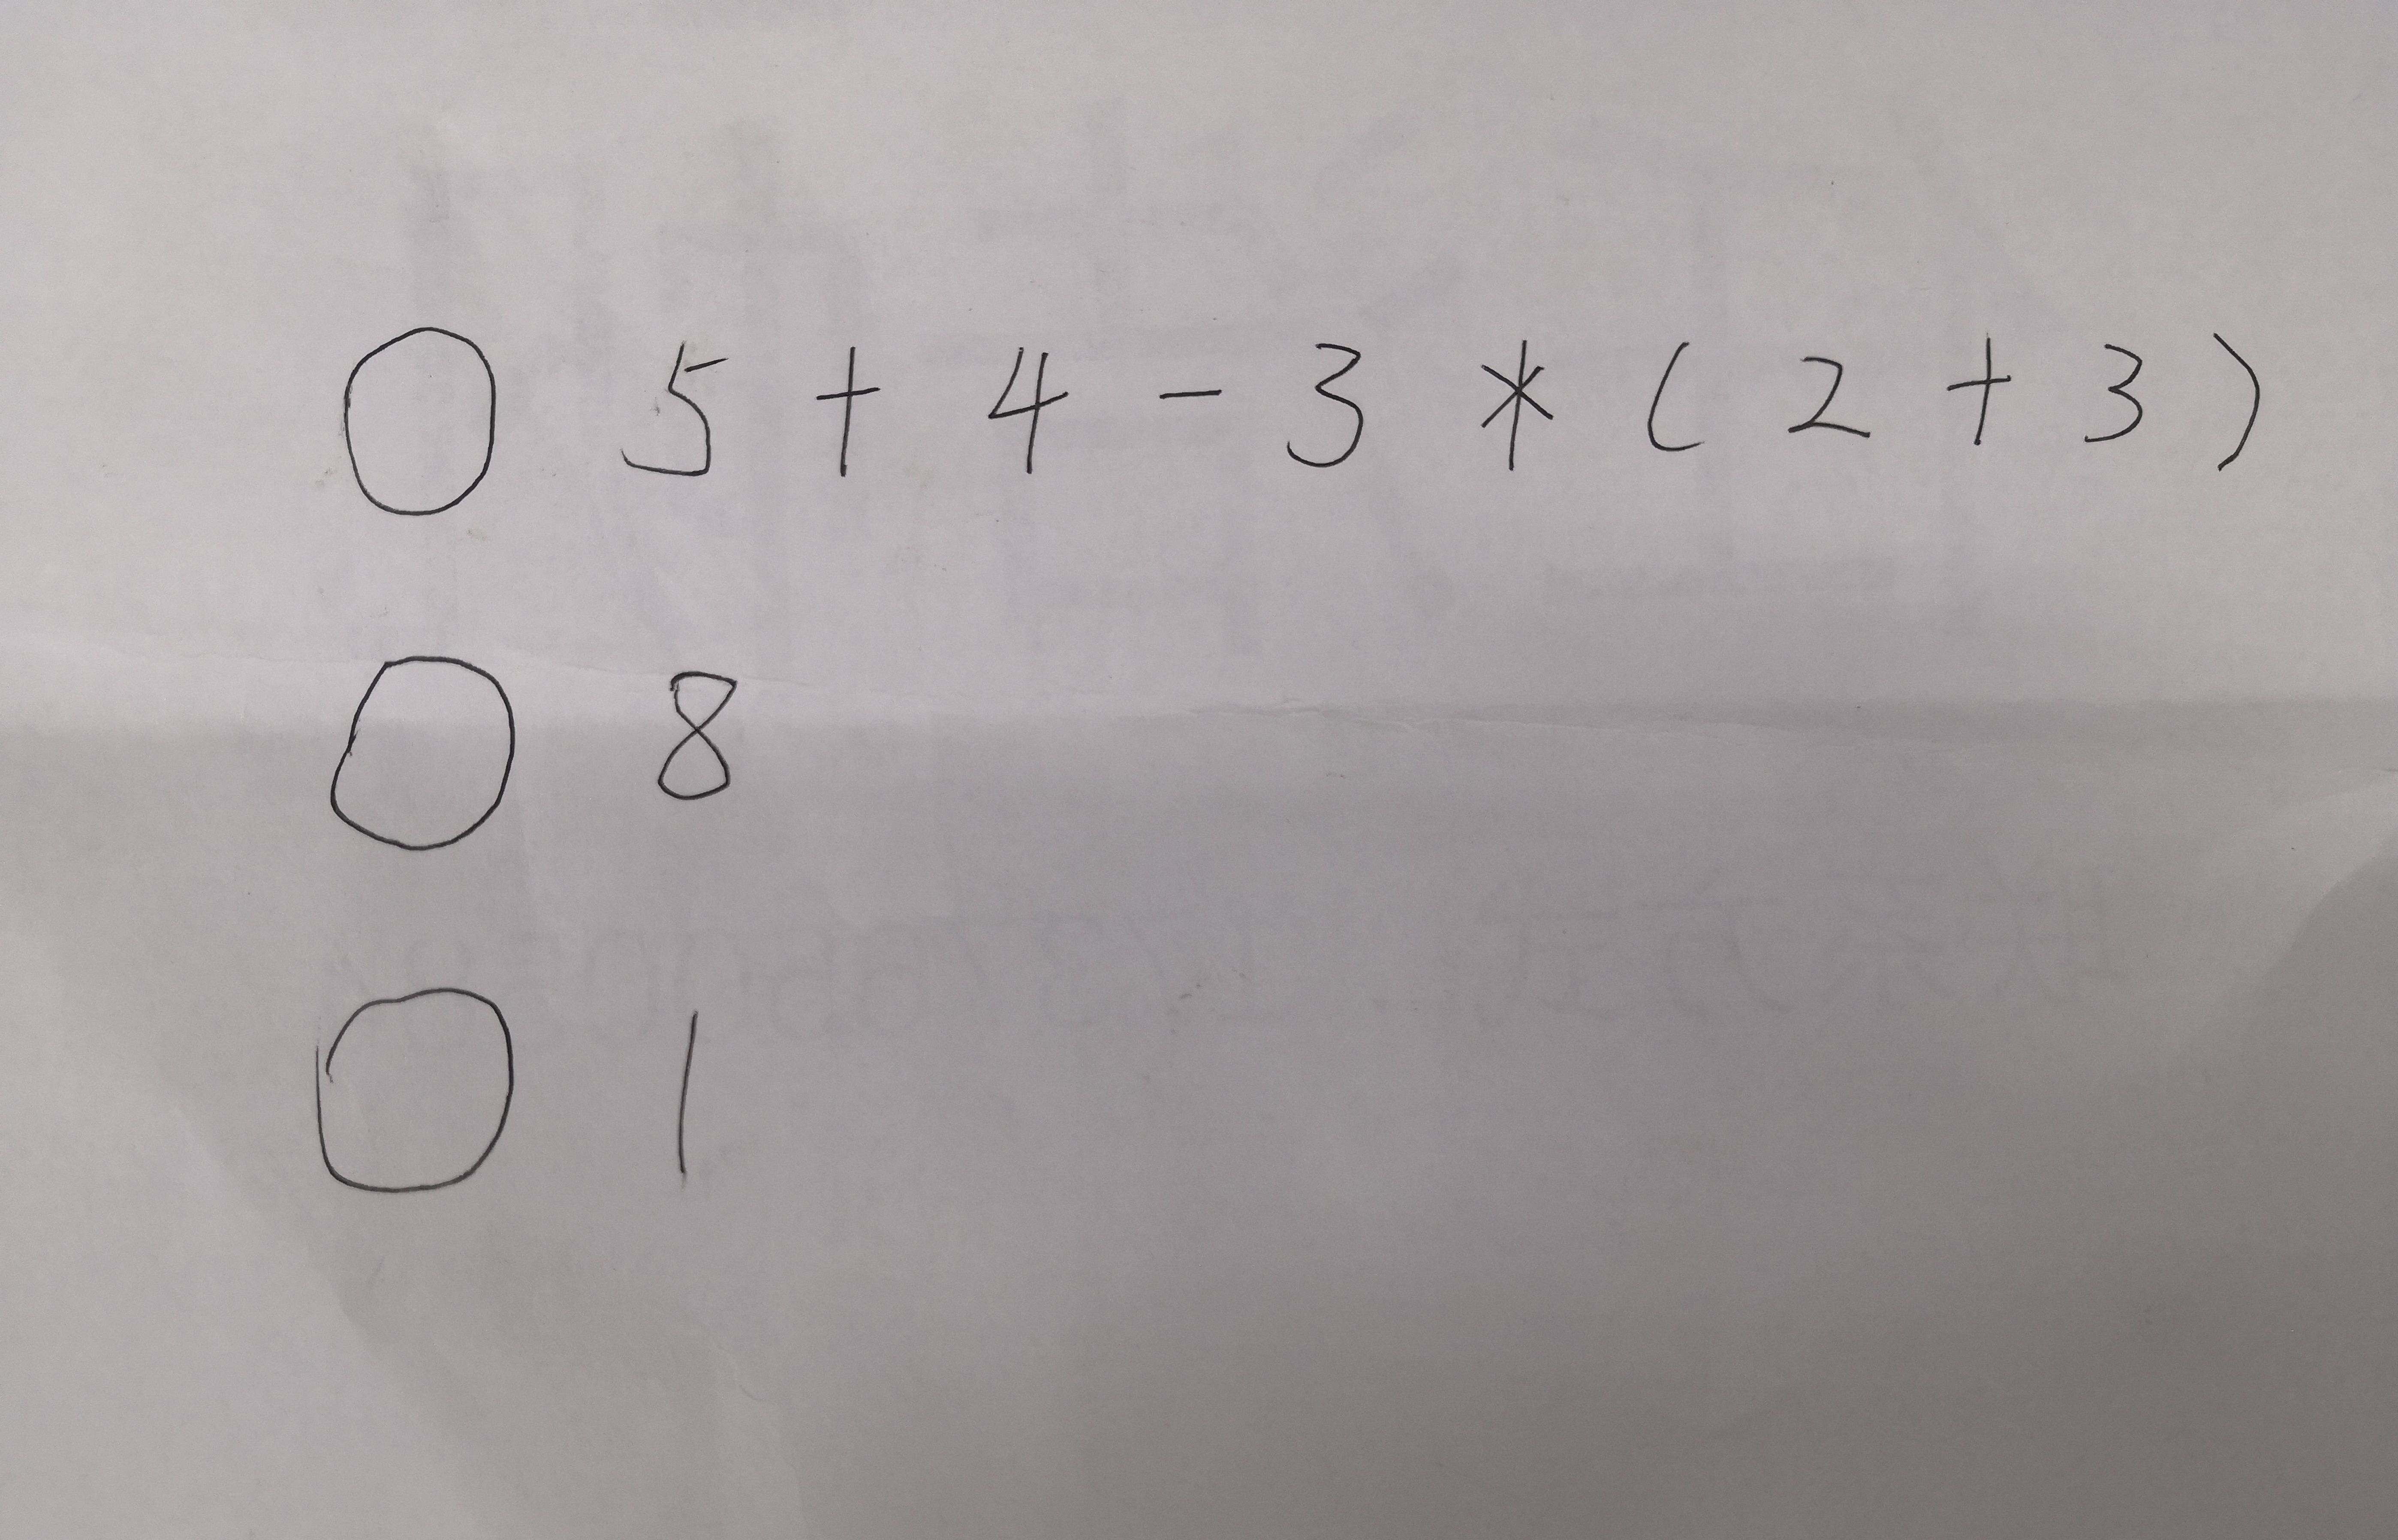 ○ 5 + 4 - 3 * ( 2 + 3 )
○ 8
○ 1